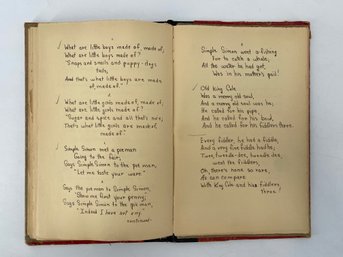 What are little boys made of, made of,
What are little boys made of?
"Snaps and snails and puppy-dogs
tails,
And that's what little boys are made
of, made of."
What are little girls made of, made of,
What are little girls made of?
"Sugar and spice and all that's nice;
That's what little girls are made of,
made of."
Simple Simon met a pieman
Going to the fair;
Says Simple Simon to the pie man,
"Let me taste your ware."
Says the pieman to Simple Simon,
"Show me first your penny;
Says Simple Simon to the pie man,
"Indeed I have not any.
continued-
Simple Simon went a fishing
For to catch a whale;
All the water he had got,
Was in his mother's pail!
Old King Cole
Was a merry old soul,
And a merry old soul was he;
He called for his pipe,
And he called for his bowl,
And he called for his fiddlers three.
Every fiddler, he had a fiddle,
And a very fine fiddle had he;
Twee, tweedle-dee, tweedle dee,
went the fiddlers,
Oh, there's none so rare,
As can compare
With King Cole and his fiddlers
Three!